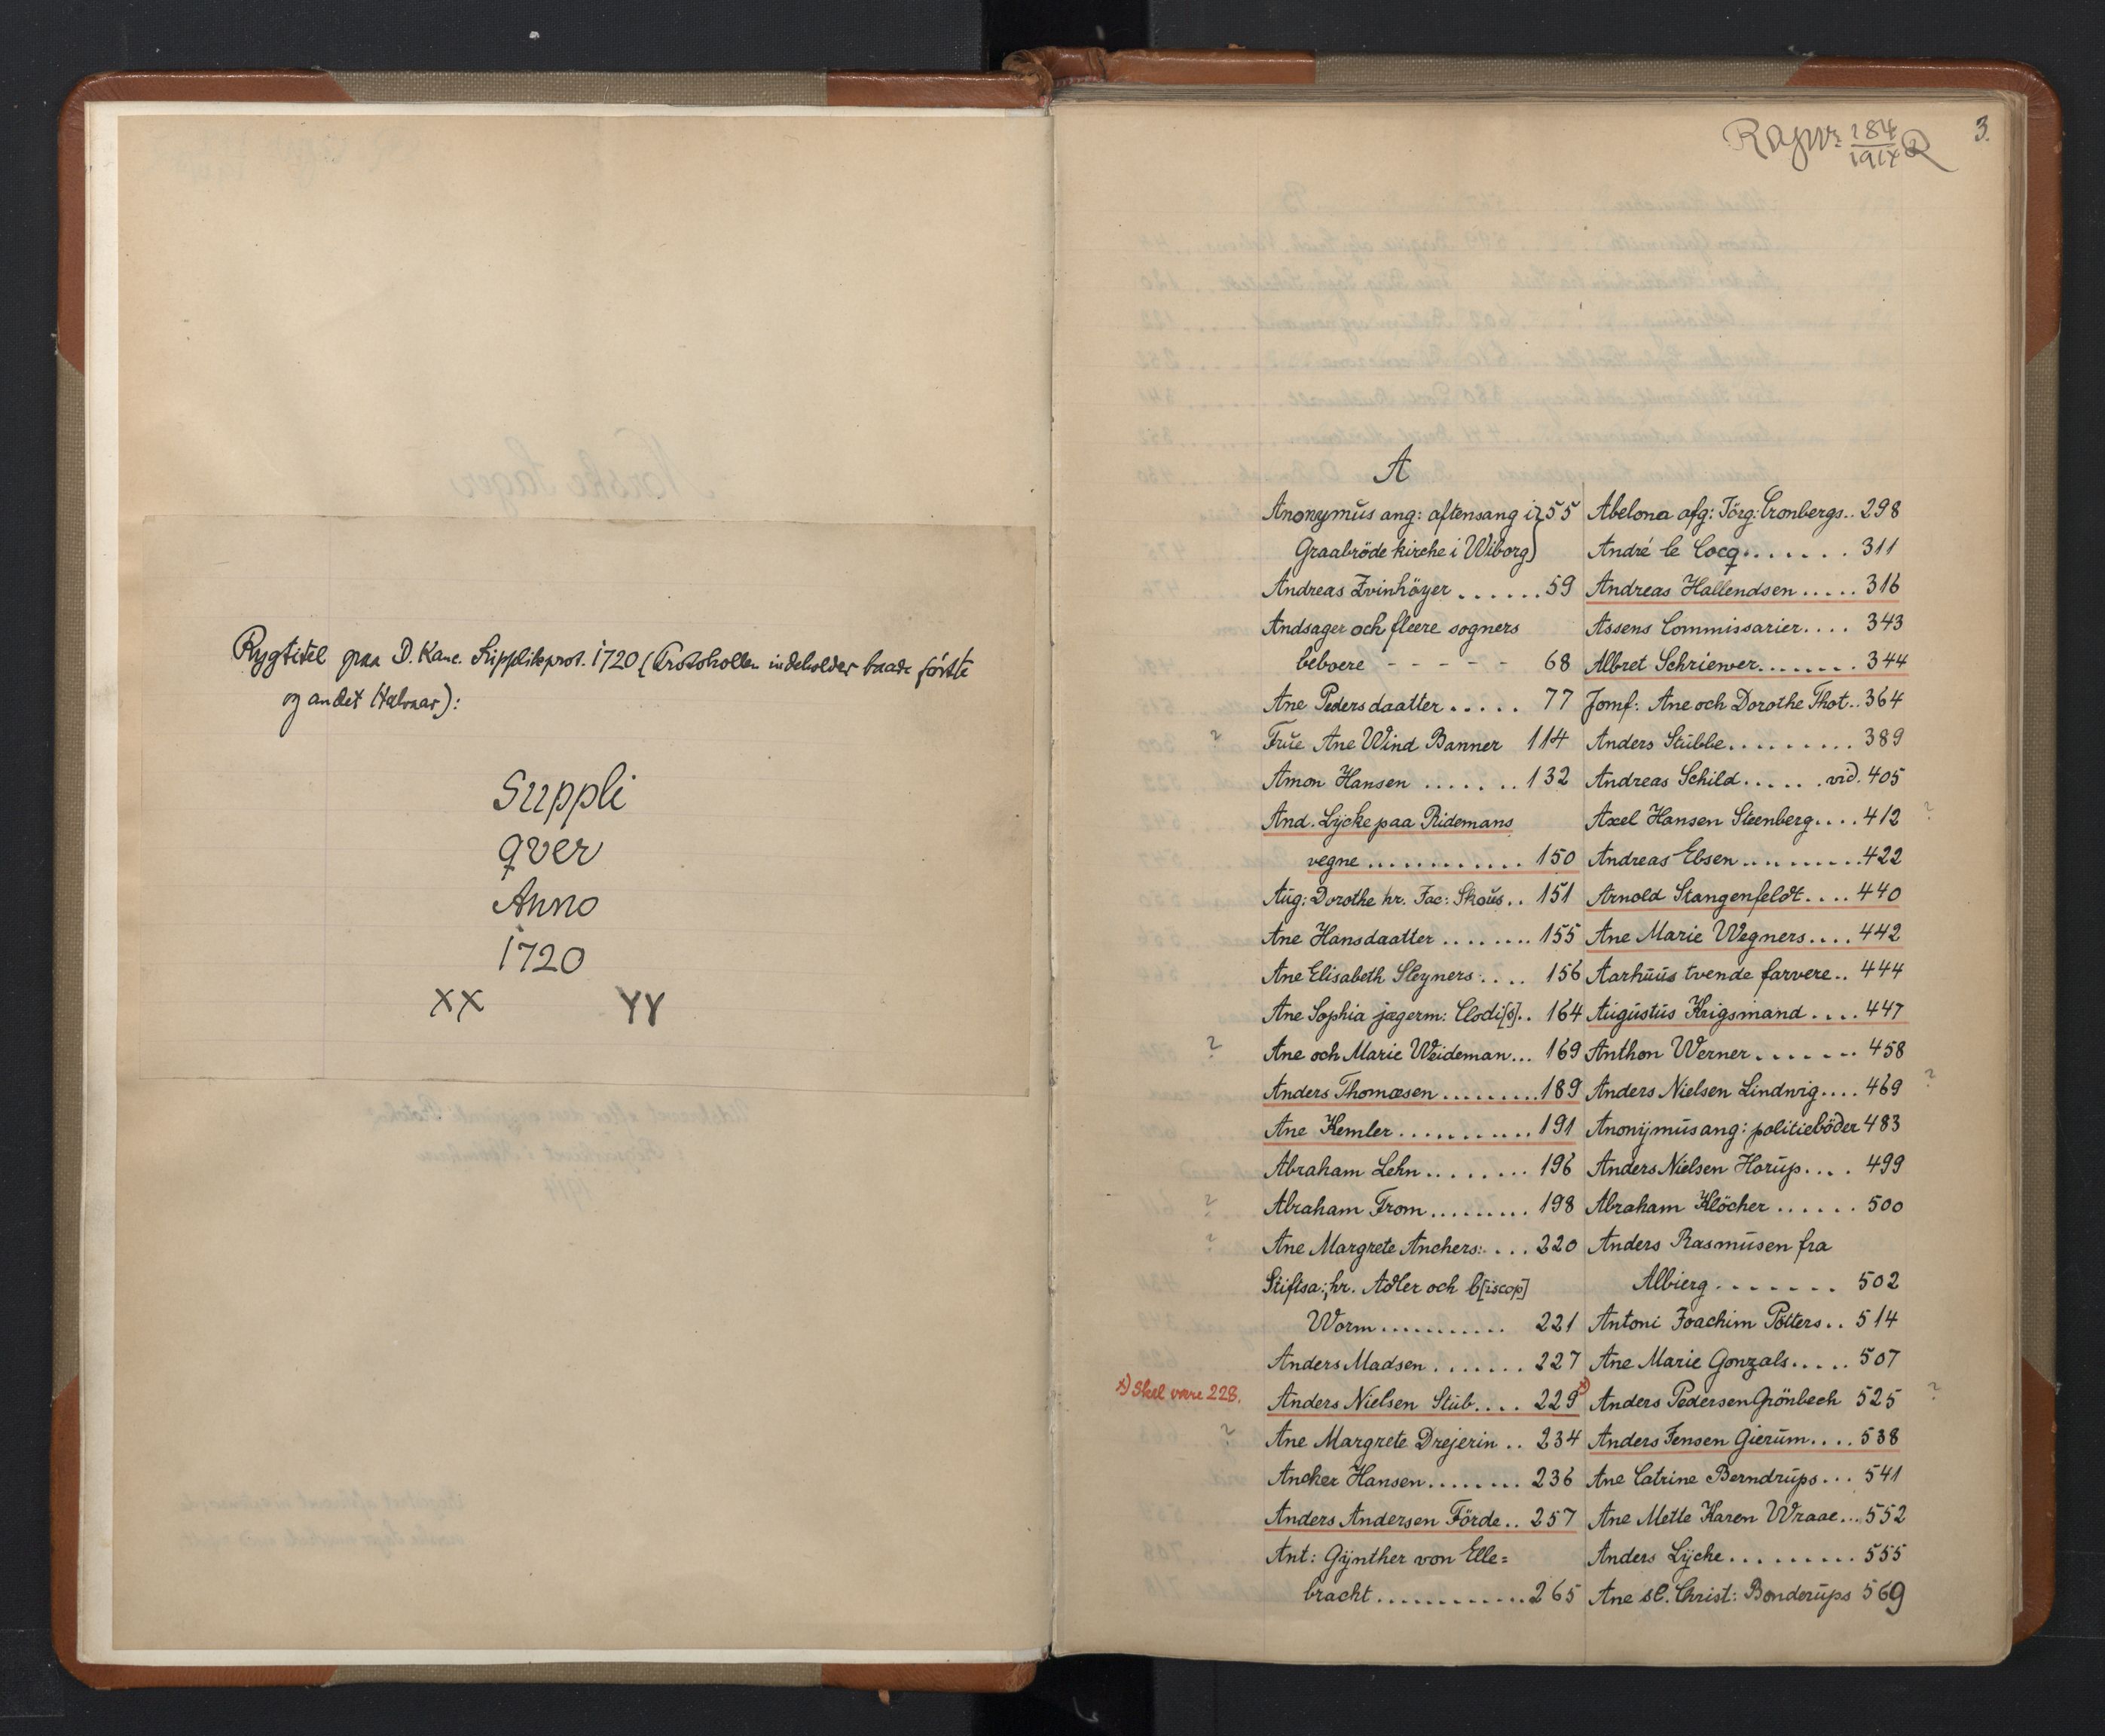 Rygtitel paa D. Kanc. Supplikprot. 1720 (Protokollen indeholder baade første
og andet Halvaar):
Suppli
qver
Anno
1720
XX YY
3.
284
1914
A
Anonymus ang: aftensang i 55
Graabröde kirche i Wiborg
Andreas Svinhöyer ...... 59
Andsager och fleere sogners
beboere - - - - - 68
Ane Pedersdaatter ..... 77
? Frue Ane Wind Banner 114
Amon Hansen ....... 132
And. Lycke paa Ridemans
vegne ............ 150
Aug: Dorothe hr. Jac: Skous .. 151
Ane Hansdaatter ........ 155
Ane Elisabeth Sleyners: ... 156
Ane Sophia jægerm: Clodi[s].. 164
? Ane och Marie Weideman... 169
Anders Thomæsen ......... 189
Ane Kemler ........... 191
Abraham Lehn ........ 196
? Abraham From ......... 198
? Ane Margrete Anchers: ... 220
Stiftsa:, hr. Adler och b[iscop]
Worm ........... 221
Anders Madsen ....... 227
x) Skal være 228. Anders Nielsen Stub.... 229 x)
? Ane Margrete Drejerin .. 234
Ancher Hansen ........ 236
Anders Andersen Förde .. 257
Ant: Gynther von Elle=
bracht ............ 265
Abelona afg: Jörg: Cronbergs.. 298
André le Cocq ....... 311
Andreas Hallendsen ..... 316
Assens Commissarier.... 343
Albret Schriewer ....... 344
Jomf: Ane och Dorothe Thot.. 364
Anders Stubbe ......... 389
Andreas Schild ..... vid. 405
Axel Hansen Steenberg.... 412 ?
Andreas Ebsen ......... 422
Arnold Stangenfeldt .... 440
Ane Marie Wegners.... 442
Aarhuus tvende farvere.. 444
Augustus Krigsmand .... 447
Anthon Werner ....... 458
Anders Nielsen Lindwig.... 469 ?
Anonymus ang: politiebøder 483
Anders Nielsen Horup.... 499
Abraham Klöcher ...... 500
Anders Rasmusen fra
Albierg ....... 502
Antoni Joachim Pötters.. 514
Ane Marie Gonzals..... 507
Anders Pedersen Grönbech 525 ?
Anders Jensen Gierum.... 538
Ane Catrine Berndrups... 541
Ane Mette Karen Wraae... 552
Anders Lyche ......... 555
Ane sl. Christ: Bonderups 569